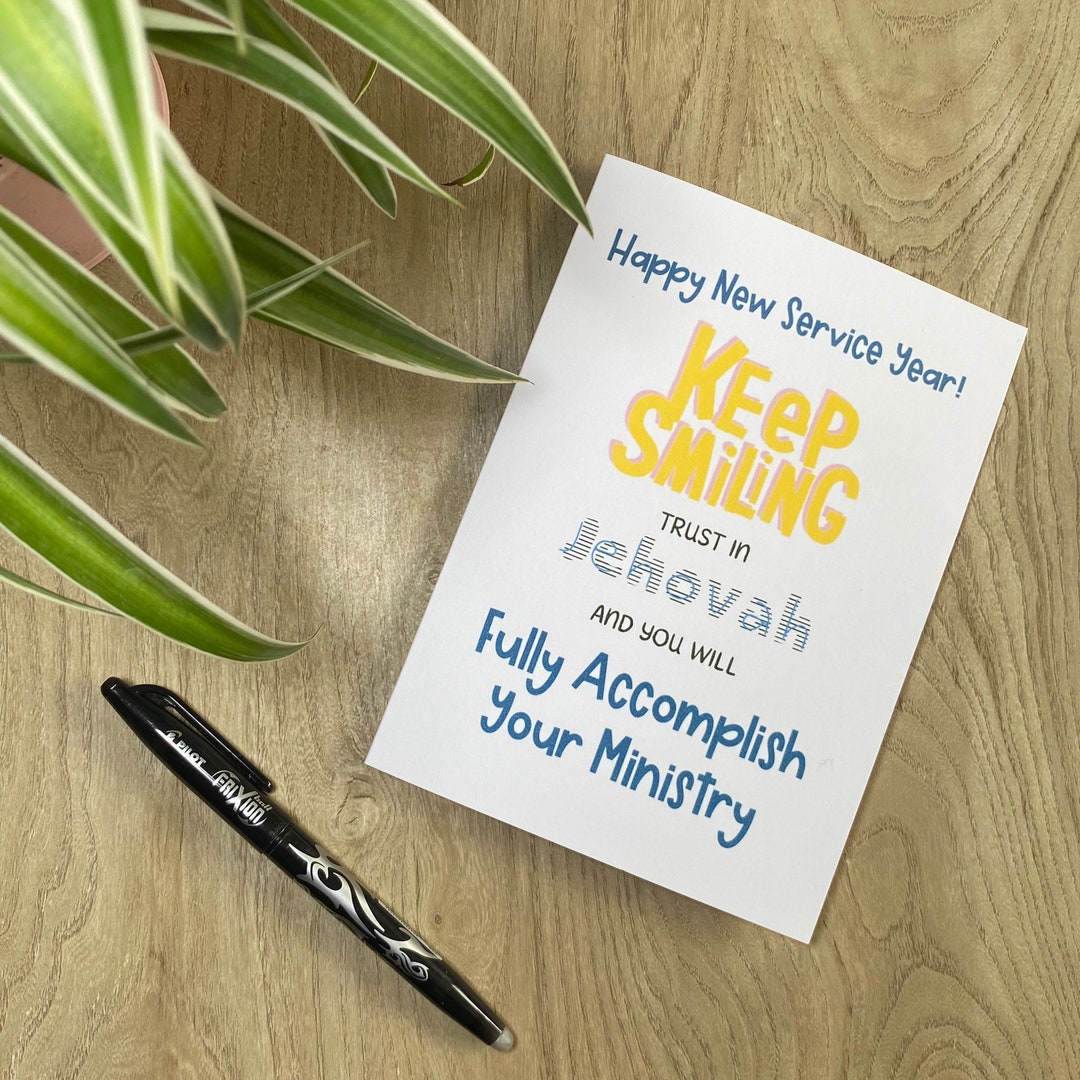 Happy New Service Year!
KEEP
SMILING
TRUST IN
Jehovah
AND YOU WILL
Fully Accomplish
Your Ministry
PILOT
FRIXION ball